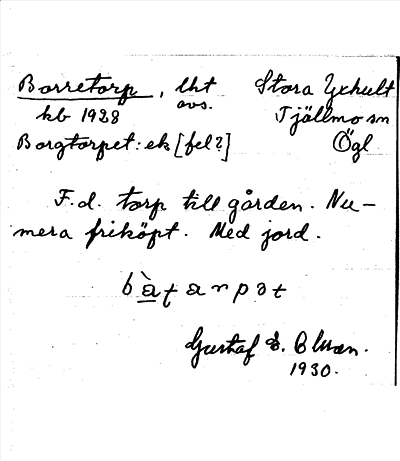 Borretorp, lht Stora Yxhult
avs.
kb 1928 Tjällmo sn
Borgtorpet: ek [fel?] Ögl
F.d. torp till gården. Nu-
mera friköpt. Med jord.
Gustaf E.
1930.